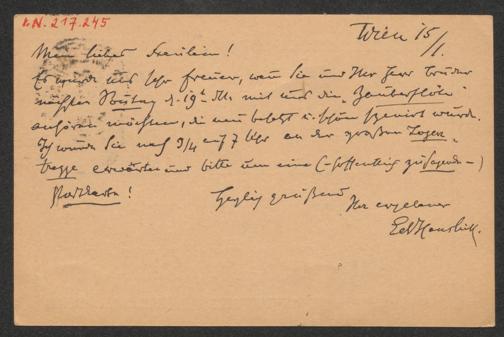 I.N. 217.245
Wien 15/1.
Mein liebes Fräulein!
Es würde uns sehr freuen, wenn Sie und Ihr Herr Bruder
nächsten Sonntag d. 19t. dM. mit uns die "Zauberflöte"
anhören möchten, die neu besetzt u. schön scenirt wurde.
Ich würde Sie nach 3/4 auf 7 Uhr an der großen Logen-
treppe erwarten und bitte um eine (hoffentlich zusagende)
Postkarte!
Herzlich grüßend
Ihr ergebener
Ed Hanslick.